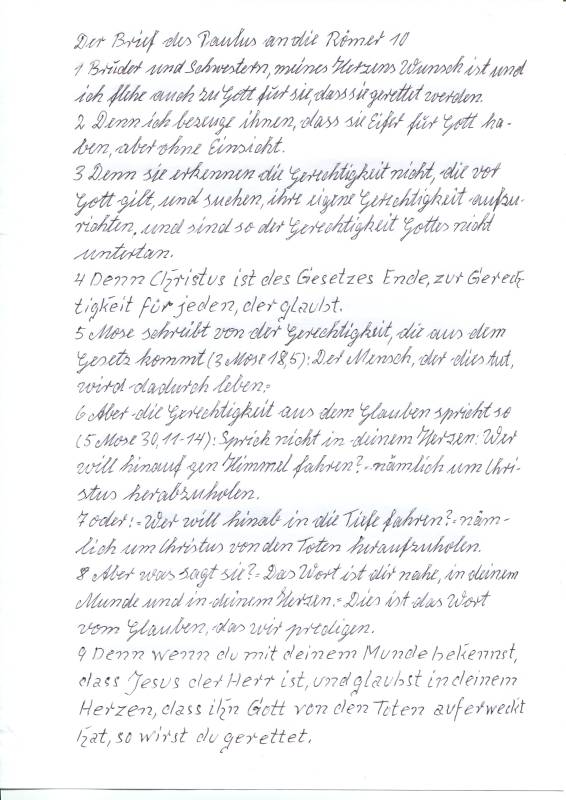 Der Brief des Paulus an die Römer 10
1 Brüder und Schwestern, meines Herzens Wunsch ist und
ich flehe auch zu Gott für sie, dass sie gerettet werden.
2 Denn ich bezeuge ihnen, dass sie Eifer für Gott ha-
ben, aber ohne Einsicht.
3 Denn sie erkennen die Gerechtigkeit nicht, die vor
Gott gilt, und suchen, ihre eigene Gerechtigkeit aufzu-
richten, und sind so der Gerechtigkeit Gottes nicht
untertan.
4 Denn Christus ist des Gesetzes Ende, zur Gerech-
tigkeit für jeden, der glaubt.
5 Mose schreibt von der Gerechtigkeit, die aus dem
Gesetz kommt (3 Mose 18,5): Der Mensch, der dies tut,
wird dadurch leben.=
6 Aber die Gerechtigkeit aus dem Glauben spricht so
(5 Mose 30,11-14): Sprich nicht in deinem Herzen: Wer
will hinauf gen Himmel fahren?= nämlich um Chri-
stus herabzuholen.
7 oder:=Wer will hinab in die Tiefe fahren?= näm-
lich um Christus von den Toten heraufzuholen.
8 Aber was sagt sie?= Das Wort ist dir nahe, in deinem
Munde und in deinem Herzen.= Dies ist das Wort
vom Glauben, das wir predigen.
9 Denn wenn du mit deinem Munde bekennst,
dass Jesus der Herr ist, und glaubst in deinem
Herzen, dass ihn Gott von den Toten auferweckt
hat, so wirst du gerettet.